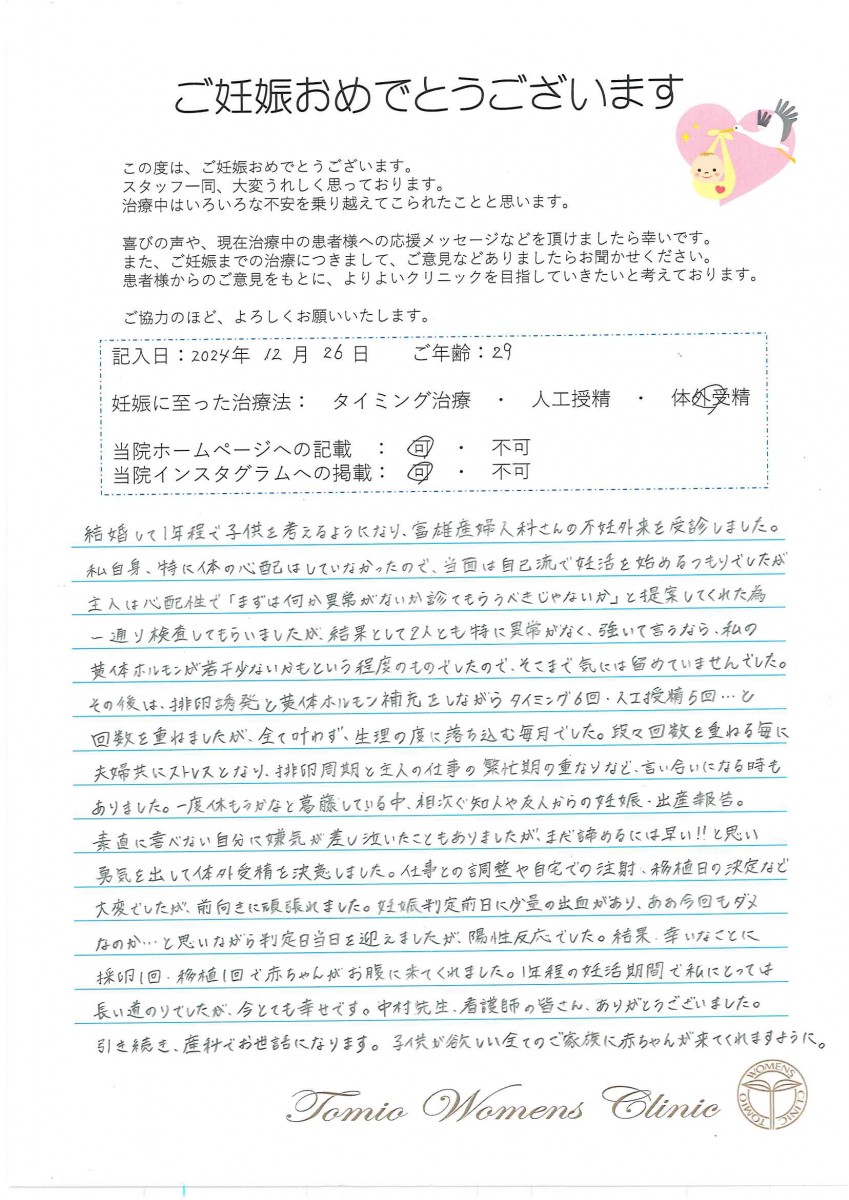 ご妊娠おめでとうございます
この度は、ご妊娠おめでとうございます。
スタッフ一同、大変うれしく思っております。
治療中はいろいろな不安を乗り越えてこられたことと思います。
喜びの声や、現在治療中の患者様への応援メッセージなどを頂けましたら幸いです。
また、ご妊娠までの治療につきまして、ご意見などありましたらお聞かせください。
患者様からのご意見をもとに、よりよいクリニックを目指していきたいと考えております。
ご協力のほど、よろしくお願いいたします。
記入日：2024年 12月 26日 ご年齢：29
妊娠に至った治療法： タイミング治療 ・ 人工授精 ・ 体外受精
当院ホームページへの記載 ： 可 ・ 不可
当院インスタグラムへの掲載： 可 ・ 不可
結婚して1年程で子供を考えるようになり、富雄産婦人科さんの不妊外来を受診しました。
私自身、特に体の心配はしていなかったので、当面は自己流で妊活を始めるつもりでしたが
主人は心配性で「まずは何か異常がないか診てもらうべきじゃないか」と提案してくれた為
一通り検査してもらいましたが、結果として2人とも特に異常がなく、強いて言うなら、私の
黄体ホルモンが若干少ないかもという程度のものでしたので、そこまで気には留めていませんでした。
その後は、排卵誘発と黄体ホルモン補充をしながらタイミング6回・人工授精5回…と
回数を重ねましたが、全て叶わず、生理の度に落ち込む毎月でした。段々回数を重ねる毎に
夫婦共にストレスとなり、排卵周期と主人の仕事の繁忙期の重なりなど、言い合いになる時も
ありました。一度休もうかなと葛藤している中、相次ぐ知人や友人からの妊娠・出産報告。
素直に喜べない自分に嫌気が差し泣いたこともありましたが、まだ諦めるには早い!!と思い
勇気を出して体外受精を決意しました。仕事との調整や自宅での注射、移植日の決定など
大変でしたが、前向きに頑張れました。妊娠判定前日に少量の出血があり、ああ今回もダメ
なのか…と思いながら判定日当日を迎えましたが、陽性反応でした。結果、幸いなことに
採卵1回・移植1回で赤ちゃんがお腹に来てくれました。1年程の妊活期間で私にとっては
長い道のりでしたが、今とても幸せです。中村先生、看護師の皆さん、ありがとうございました。
引き続き、産科でお世話になります。子供が欲しい全てのご家族に赤ちゃんが来てくれますように。
Tomio Womens Clinic
TOMIO WOMENS CLINIC